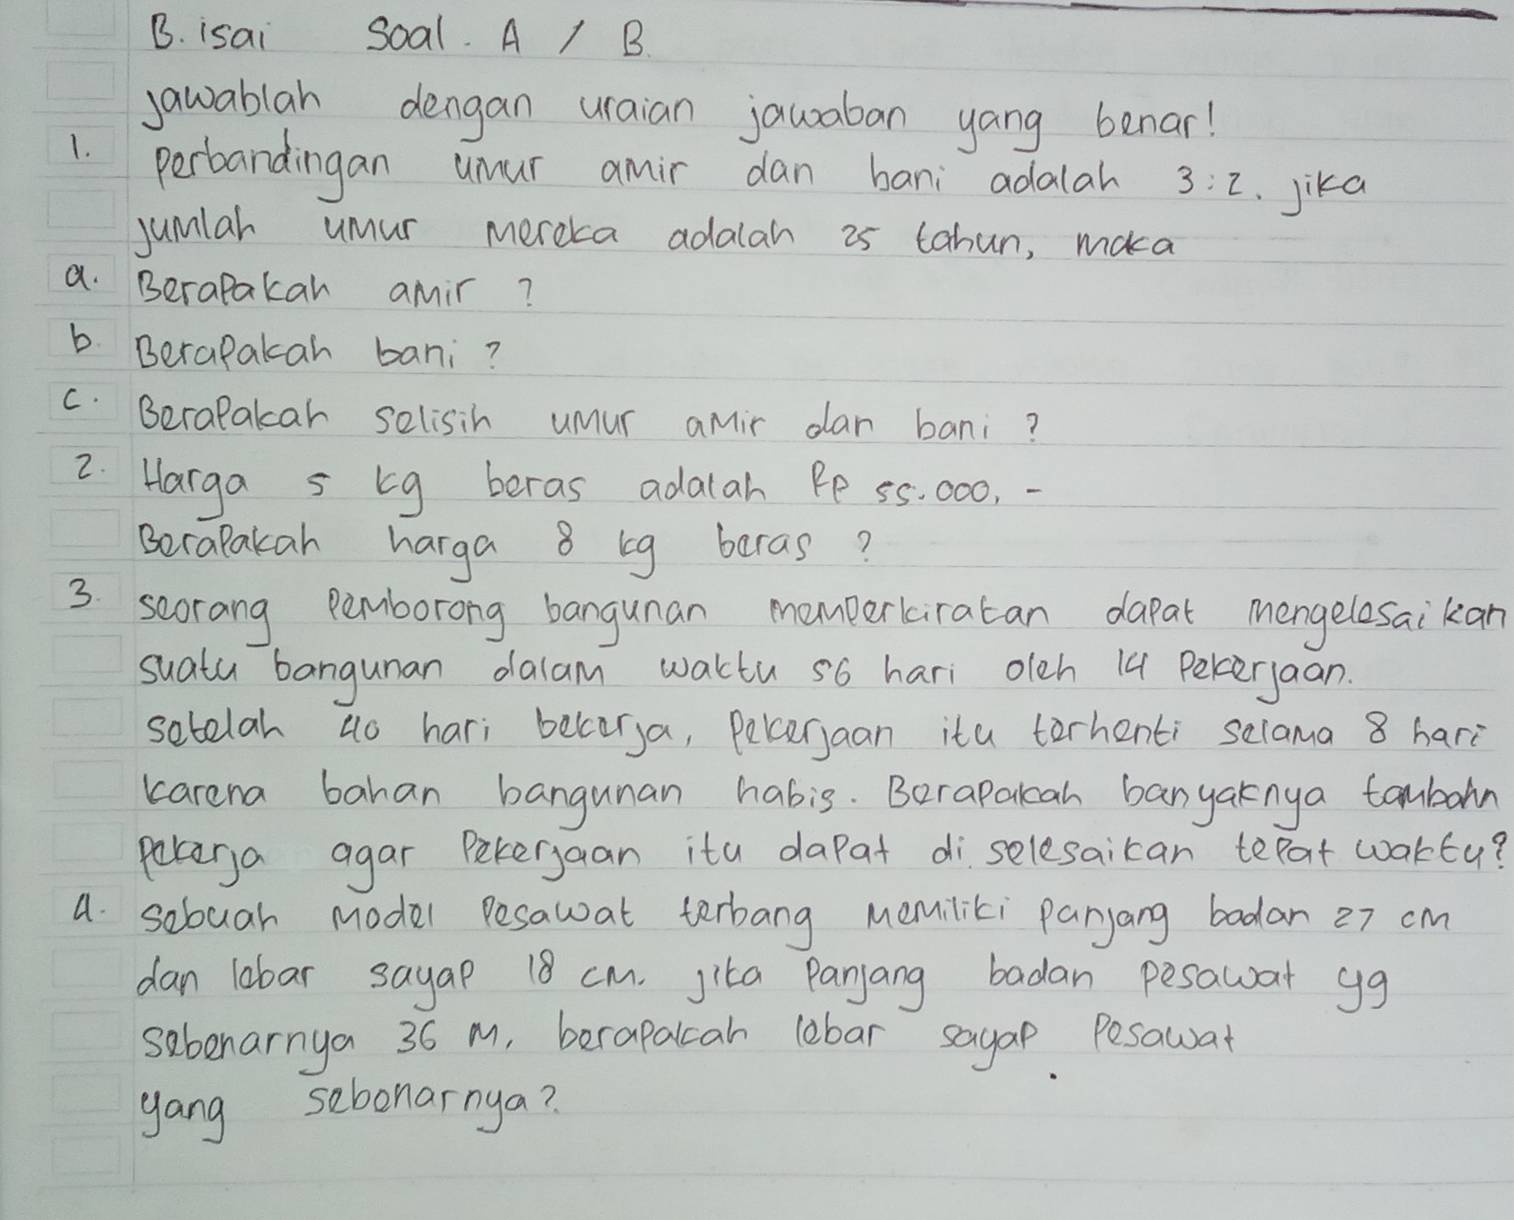 B. isai soal. A / B.
jawablah dengan uraian jawaban yang benar!
1. perbandingan umur amir dan bani adalah 3:2. jika
jumlah umur mereka adalah 25 tahun, maka
a. Berapakah amir ?
b. Berapakah bani ?
c. Berapakah selisih umur amir dan bani ?
2. Harga 5 kg beras adalah Rp 55.000, -
Berapakah harga 8 kg beras ?
3. seorang pemborong bangunan memperkiratan dapat mengelesaikan
suatu bangunan dalam waktu 56 hari oleh 14 pekerjaan.
setelah 40 hari bekerja, pekerjaan itu terhenti selama 8 hari
karena bahan bangunan habis. Berapakah banyaknya tambahn
pekerja agar pekerjaan itu dapat di selesaikan tepat waktu?
4. sebuah model pesawat terbang memiliki panjang badan 27 cm
dan lebar sayap 18 cm. jika panjang badan pesawat yg
sebenarnya 36 m, berapakah lebar sayap pesawat
yang sebenarnya?